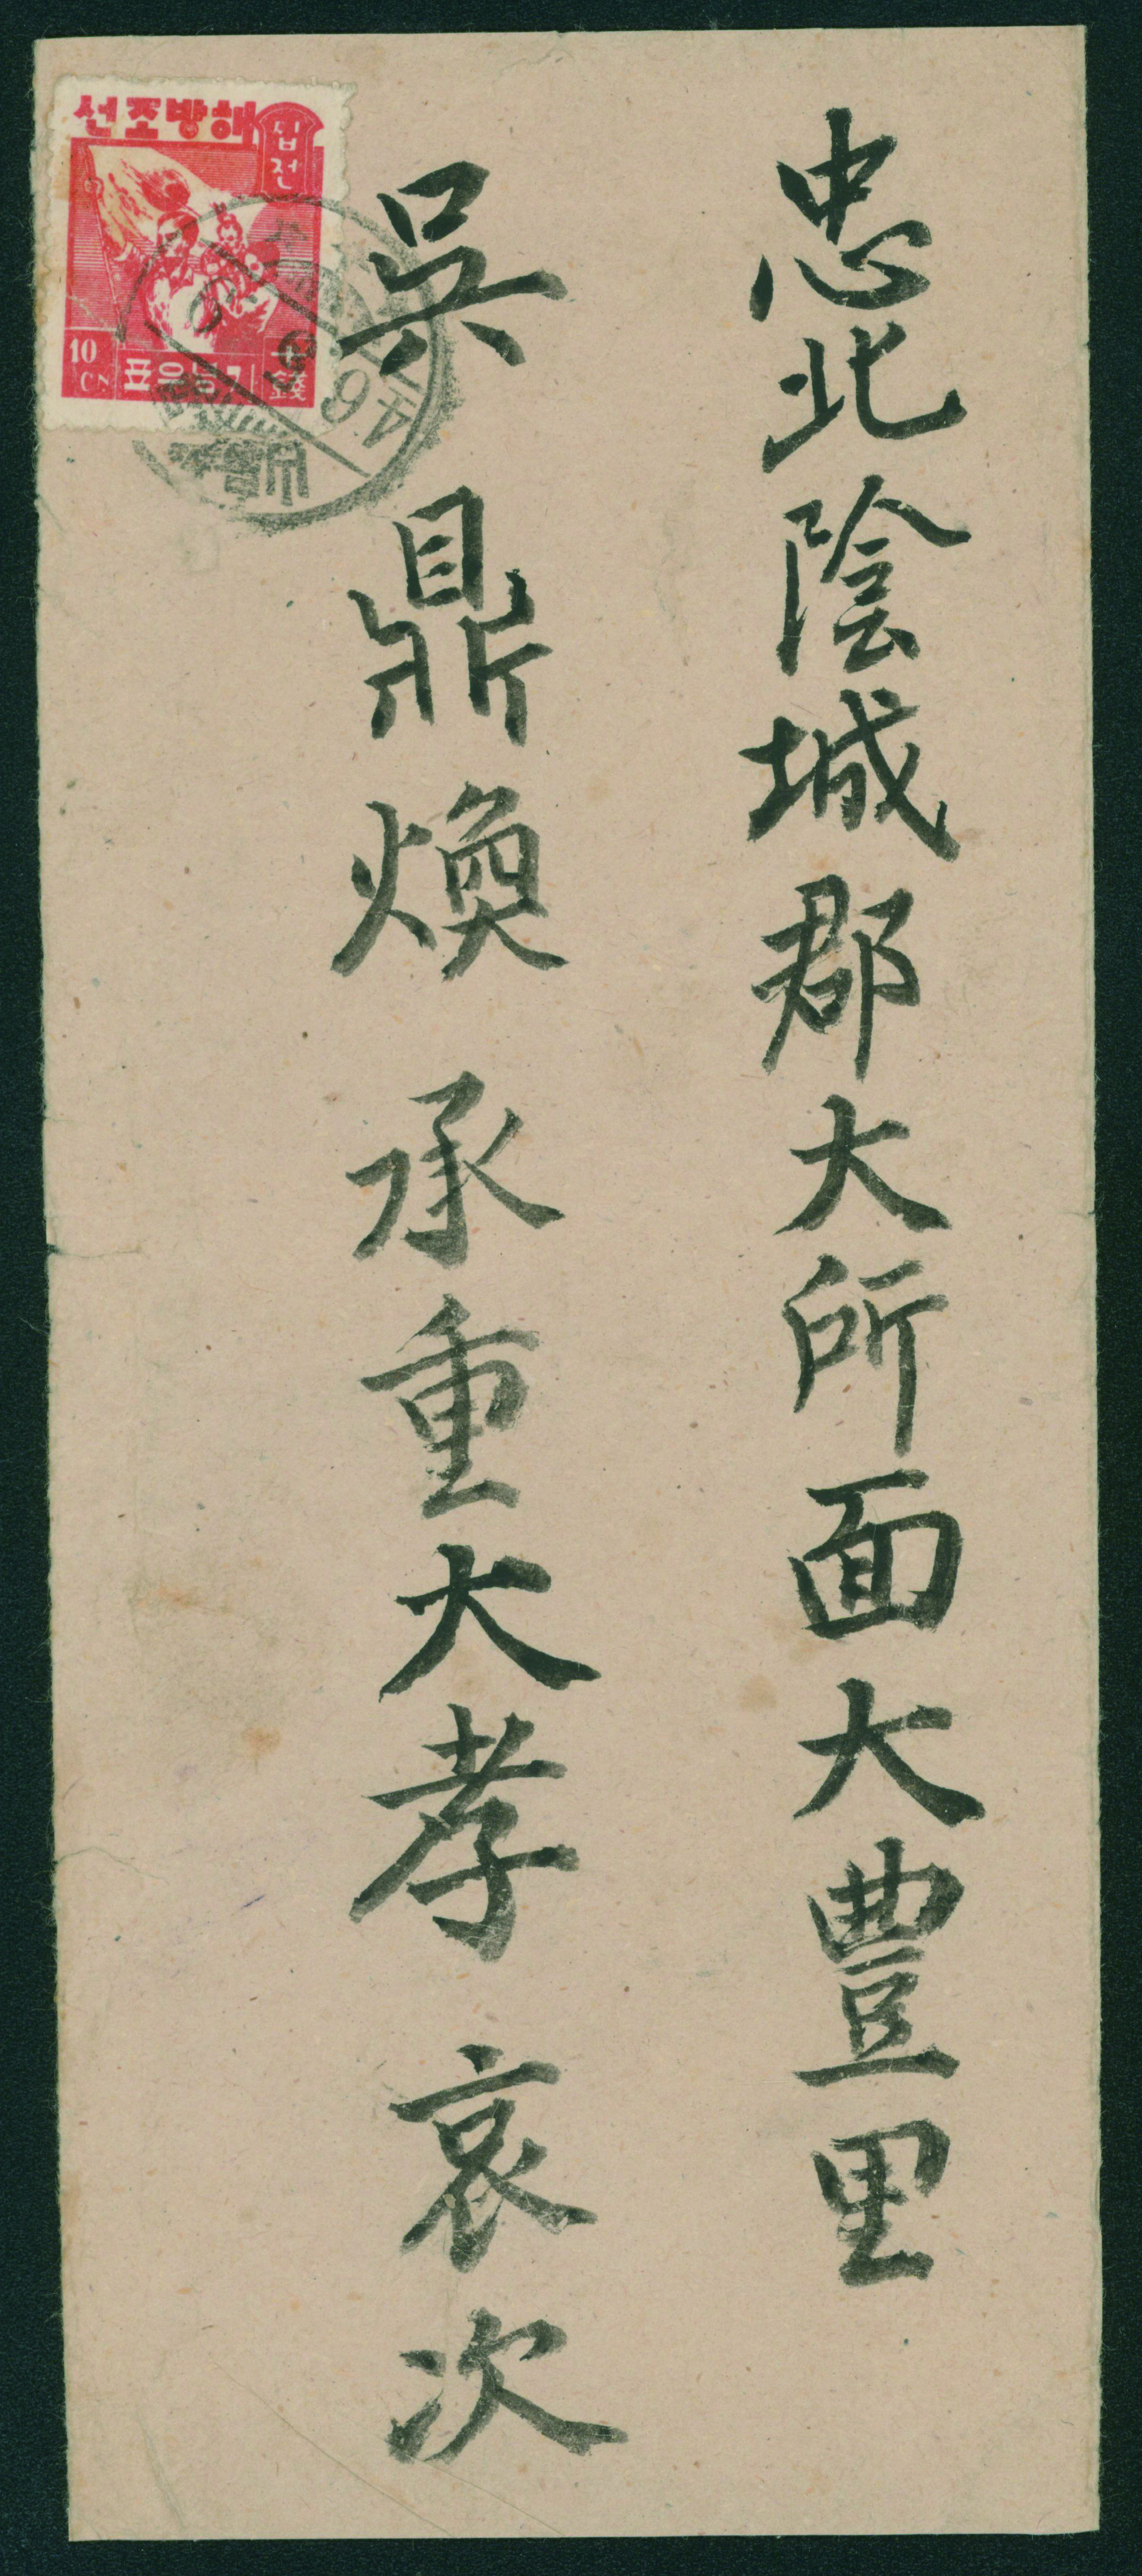 忠北陰城郡大所面大豊里
吳鼎煥承重大孝 哀次
선조방해
십전
10
CN
표우념기
十錢